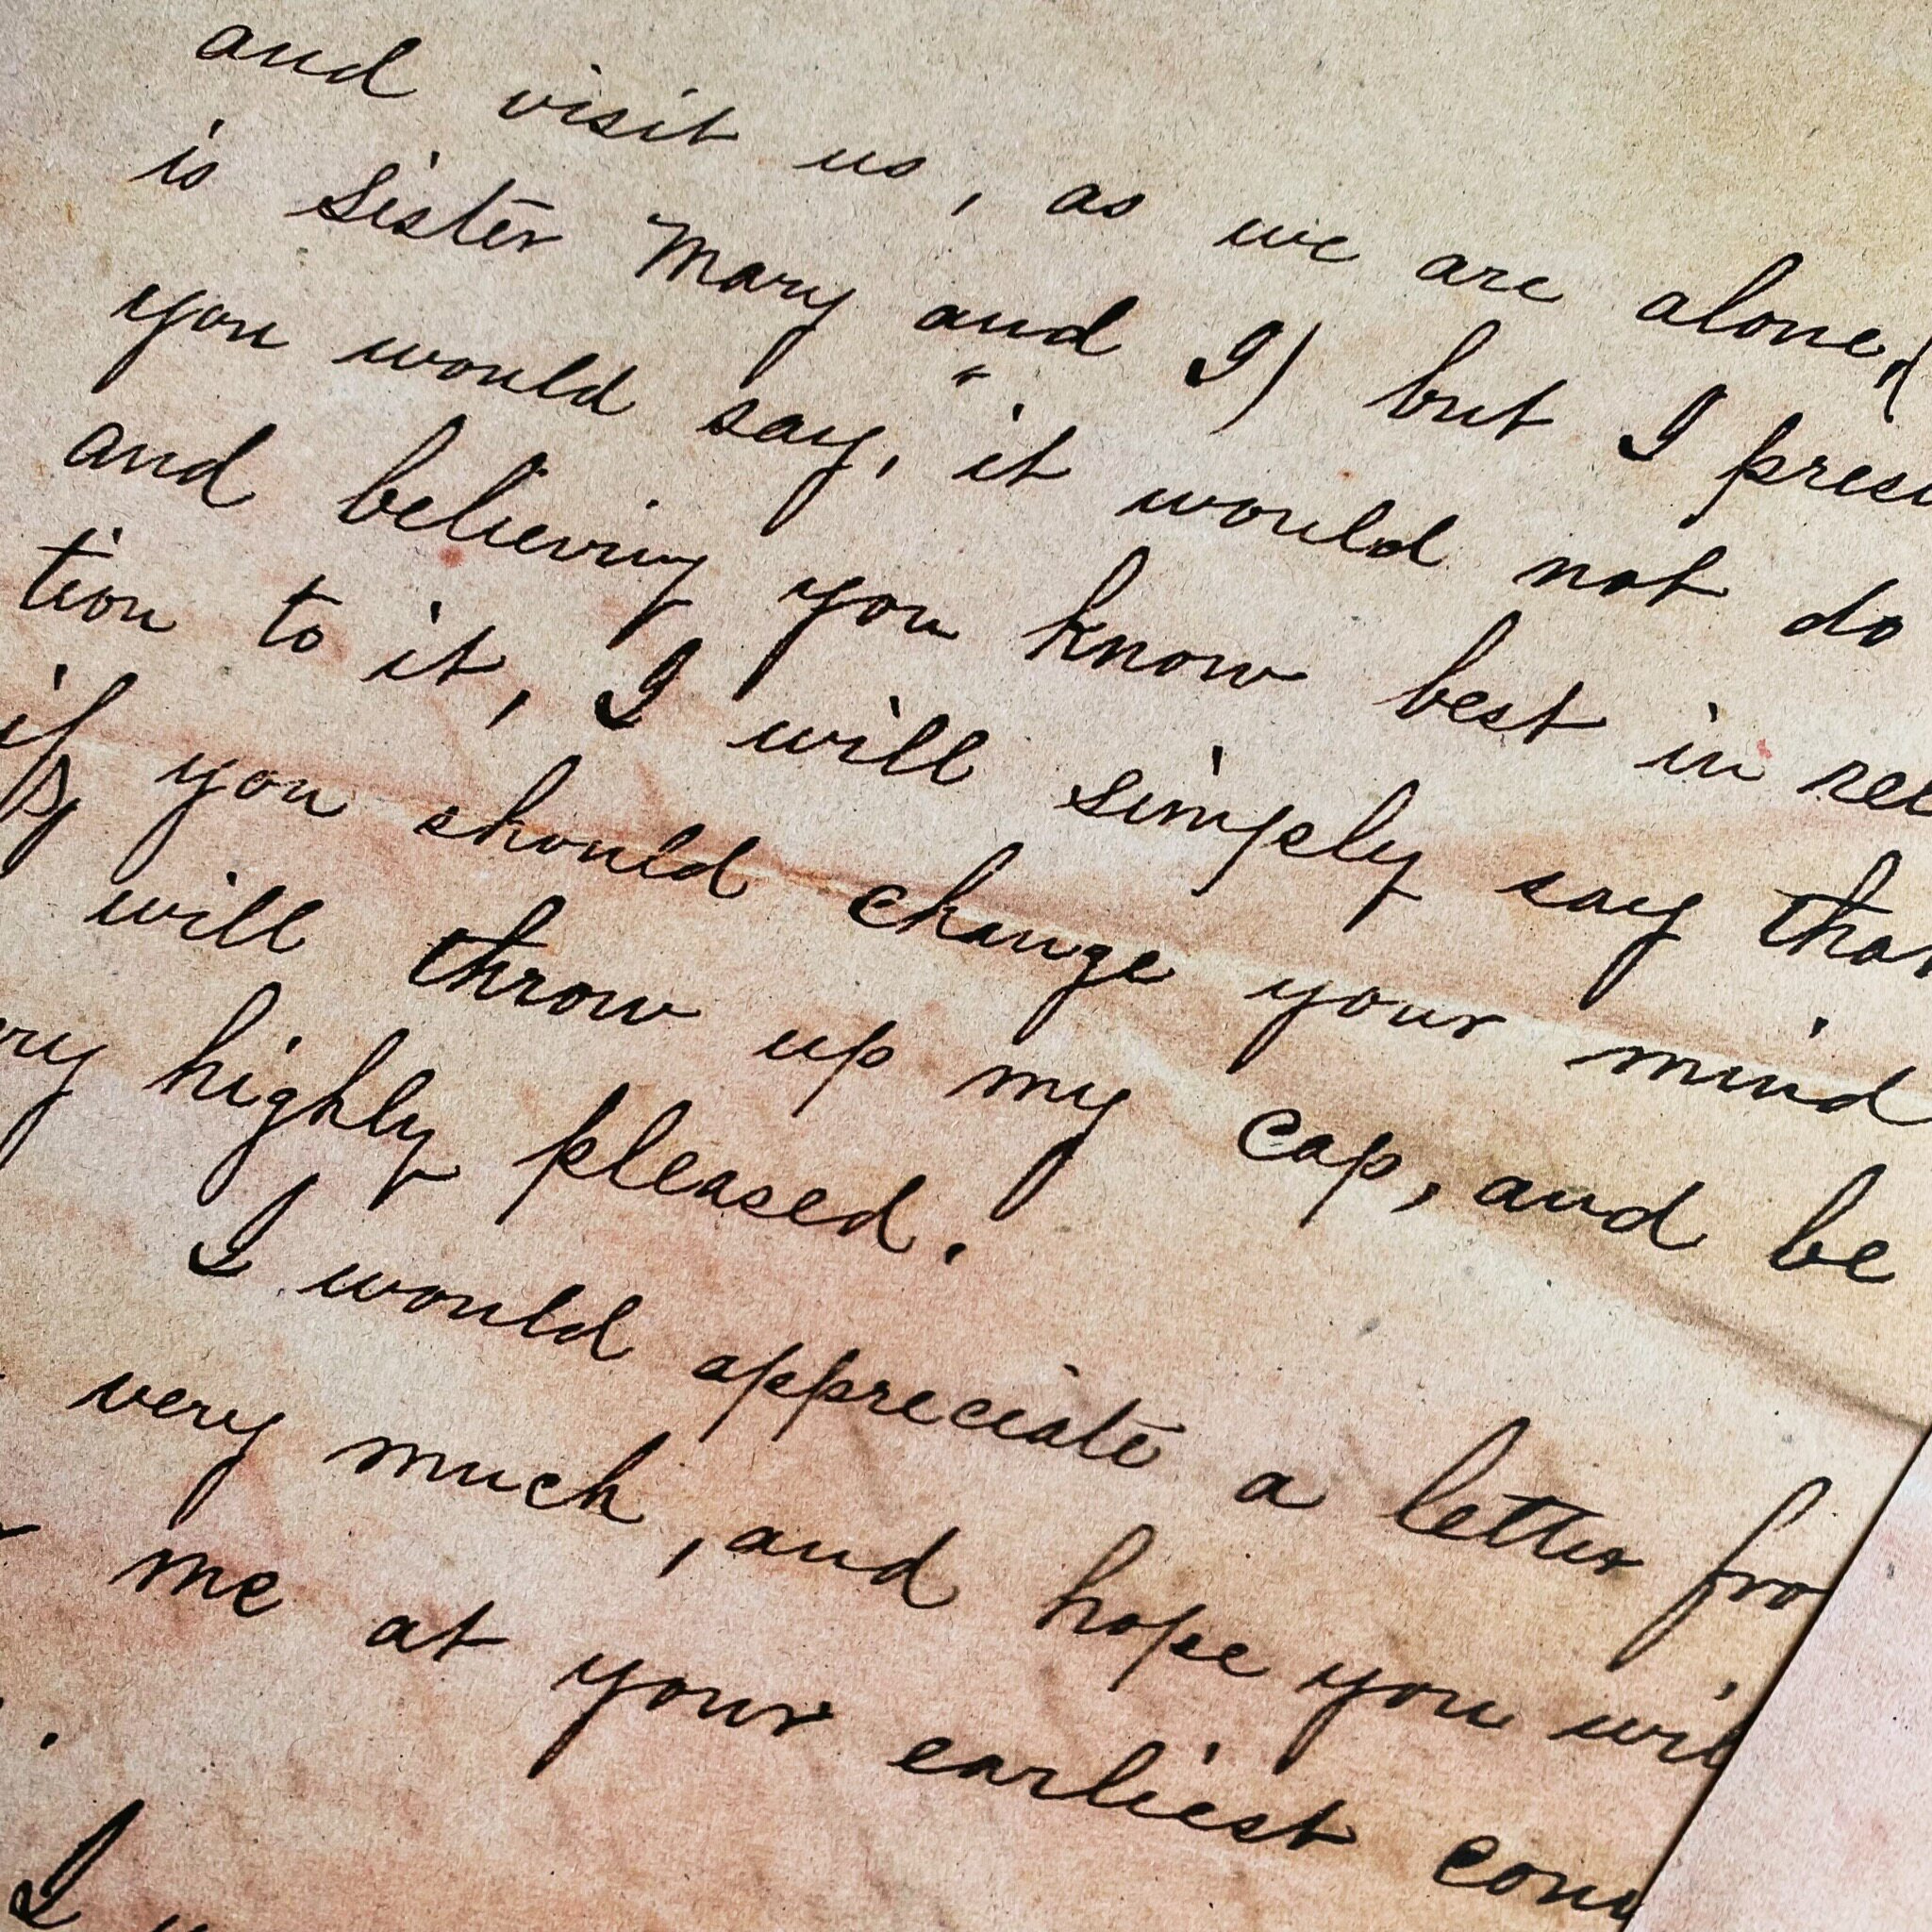 and visit us, as we are alone, (
is Sister Mary and I) but I presu
you would say, "it would not do
and believing you know best in rel
tion to it, I will simply say that
if you should change your mind
I will throw up my cap, and be
ery highly pleased.
I would appreciate a letter fro
very much, and hope you wil
me at your earliest conv
.
I